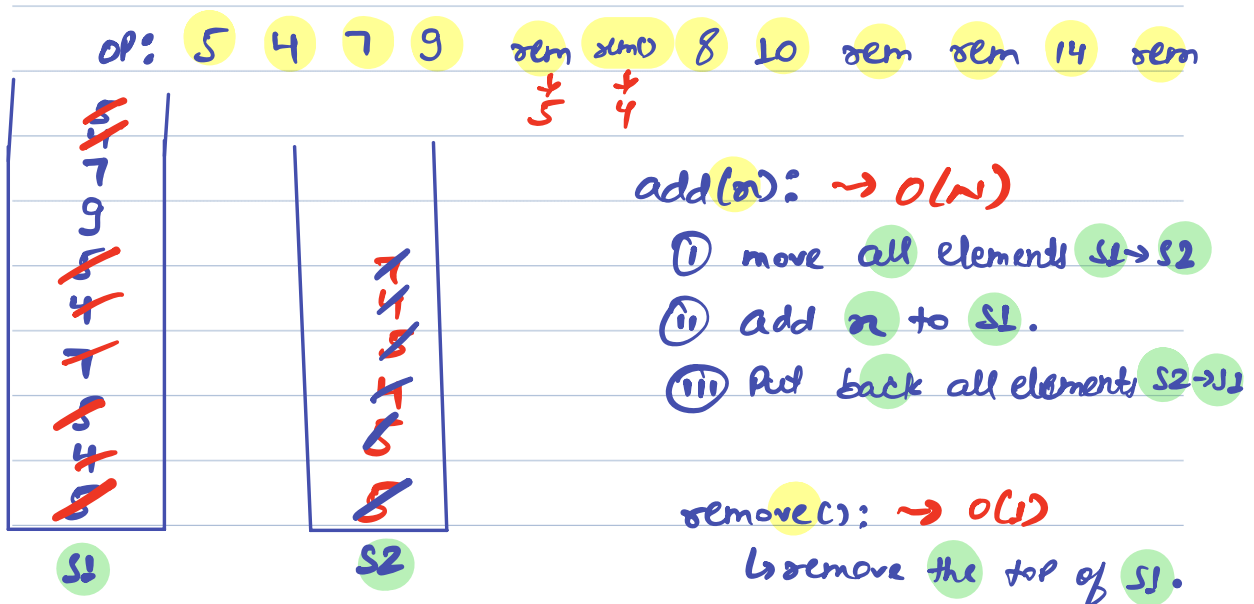 OP: 5 4 7 9 rem rem() 8 10 rem rem 14 rem
5 4
5
4
7
9
5
4
7
5
4
5
S1
7
4
5
4
5
5
S2
add(x): → O(N)
(i) move all elements S1→S2
(ii) add x to S1.
(iii) Put back all elements S2→S1
remove(): → O(1)
↳ remove the top of S1.